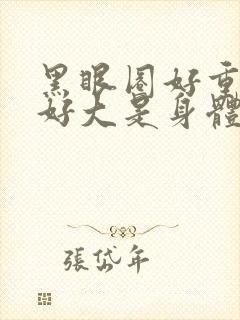 黑眼圈好重
好大是身體
張岱年